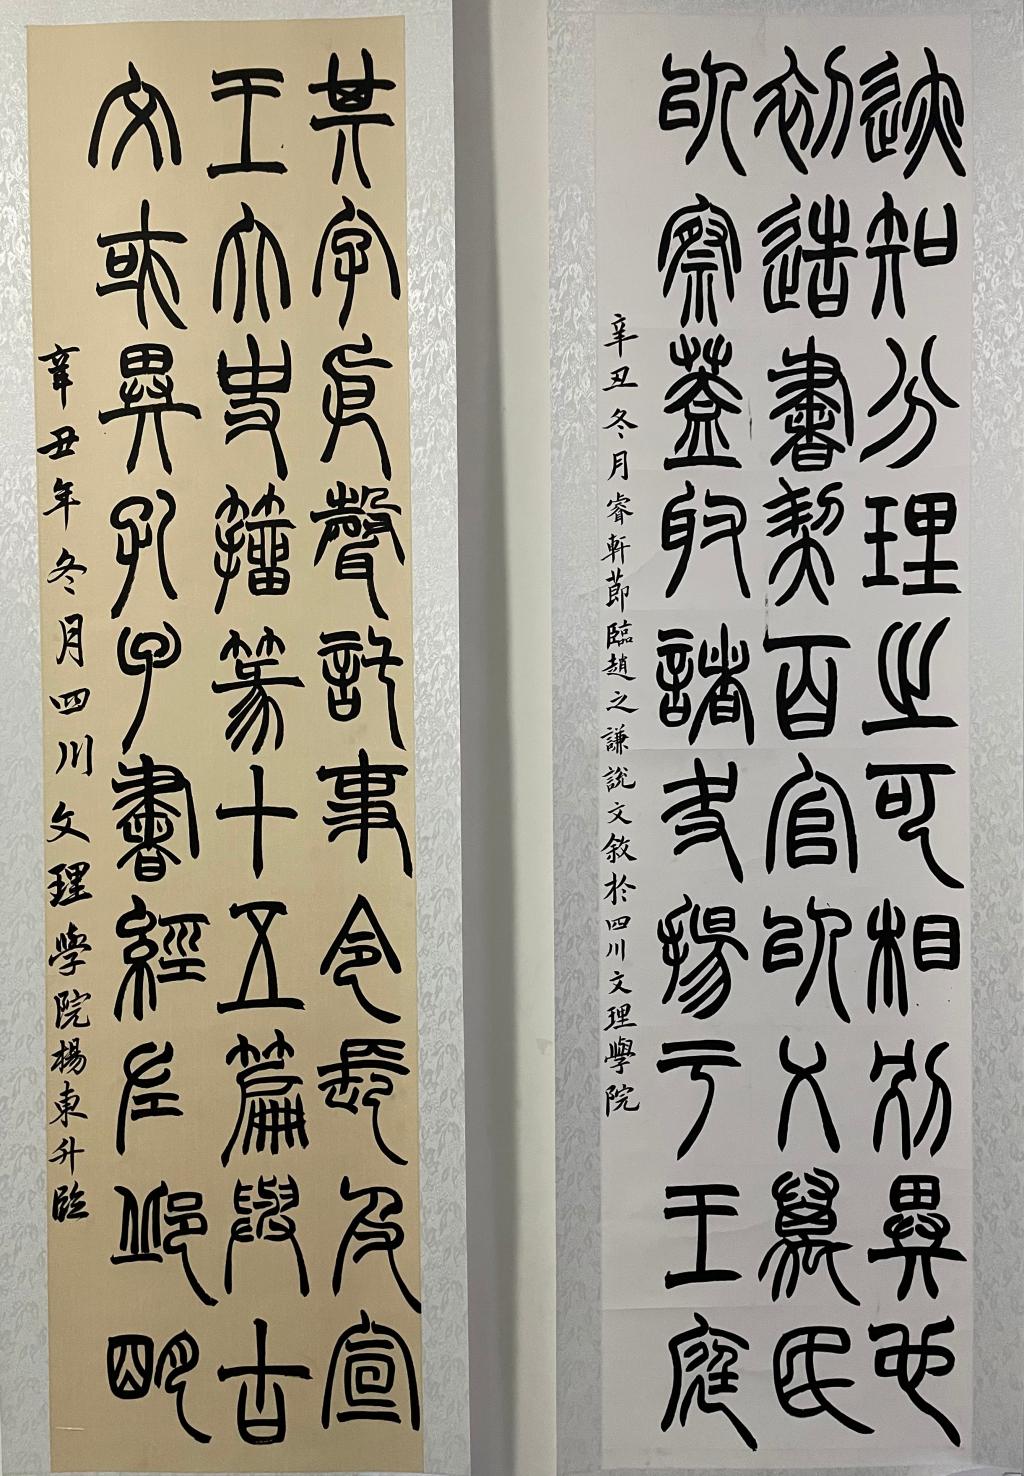 迹知分理之可相別異也
初造書契百官以乂萬民
以察蓋取諸夬揚于王庭
辛丑冬月睿軒節臨趙之謙說文敘於四川文理學院
其字㐆聲託事令長及宣
王大史籀篆十五篇與古
文或異孔子書經左邱明
辛丑年冬月四川文理學院楊東升臨